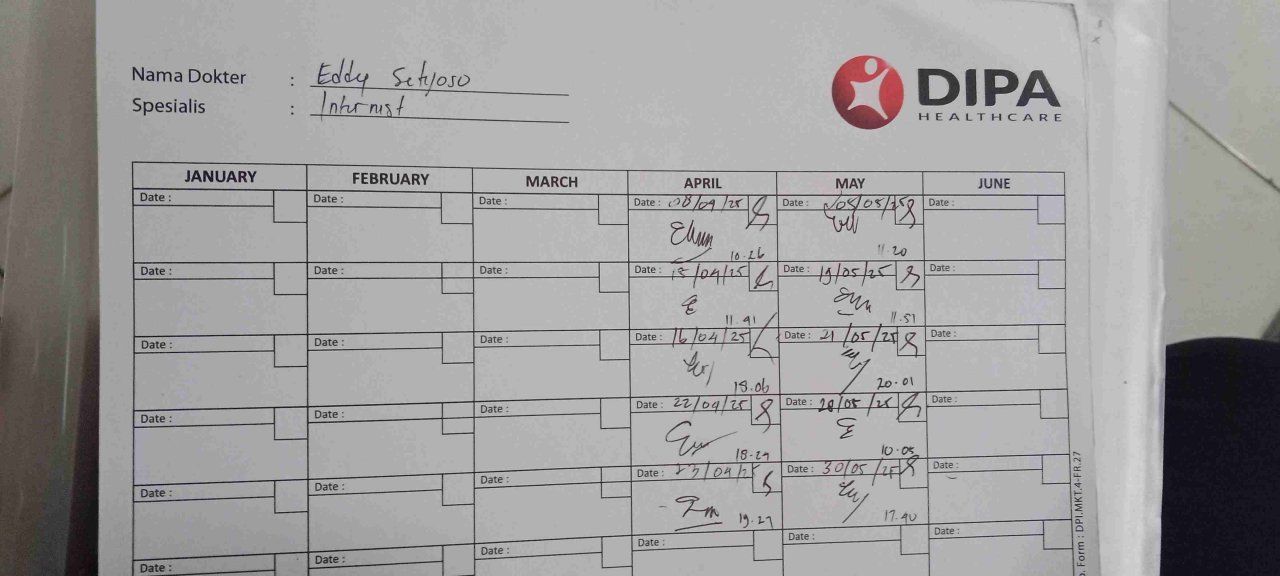 Nama Dokter : Eddy Setyoso
Spesialis : Internist
DIPA
HEALTHCARE
JANUARY FEBRUARY MARCH APRIL MAY JUNE
Date : Date : Date : Date : 08/04/25 Date : 05/05/25 Date :
10.26 11.20
Date : Date : Date : Date : 15/04/25 Date : 19/05/25 Date :
11.41 11.51
Date : Date : Date : Date : 16/04/25 Date : 21/05/25 Date :
18.06 20.01
Date : Date : Date : Date : 22/04/25 Date : 28/05/25 Date :
18.27 10.05
Date : Date : Date : Date : 23/04/25 Date : 30/05/25 Date :
19.27 17.40
Date : Date : Date : Date : Date : Date :
Form : DPI.MKT.4-FR.27